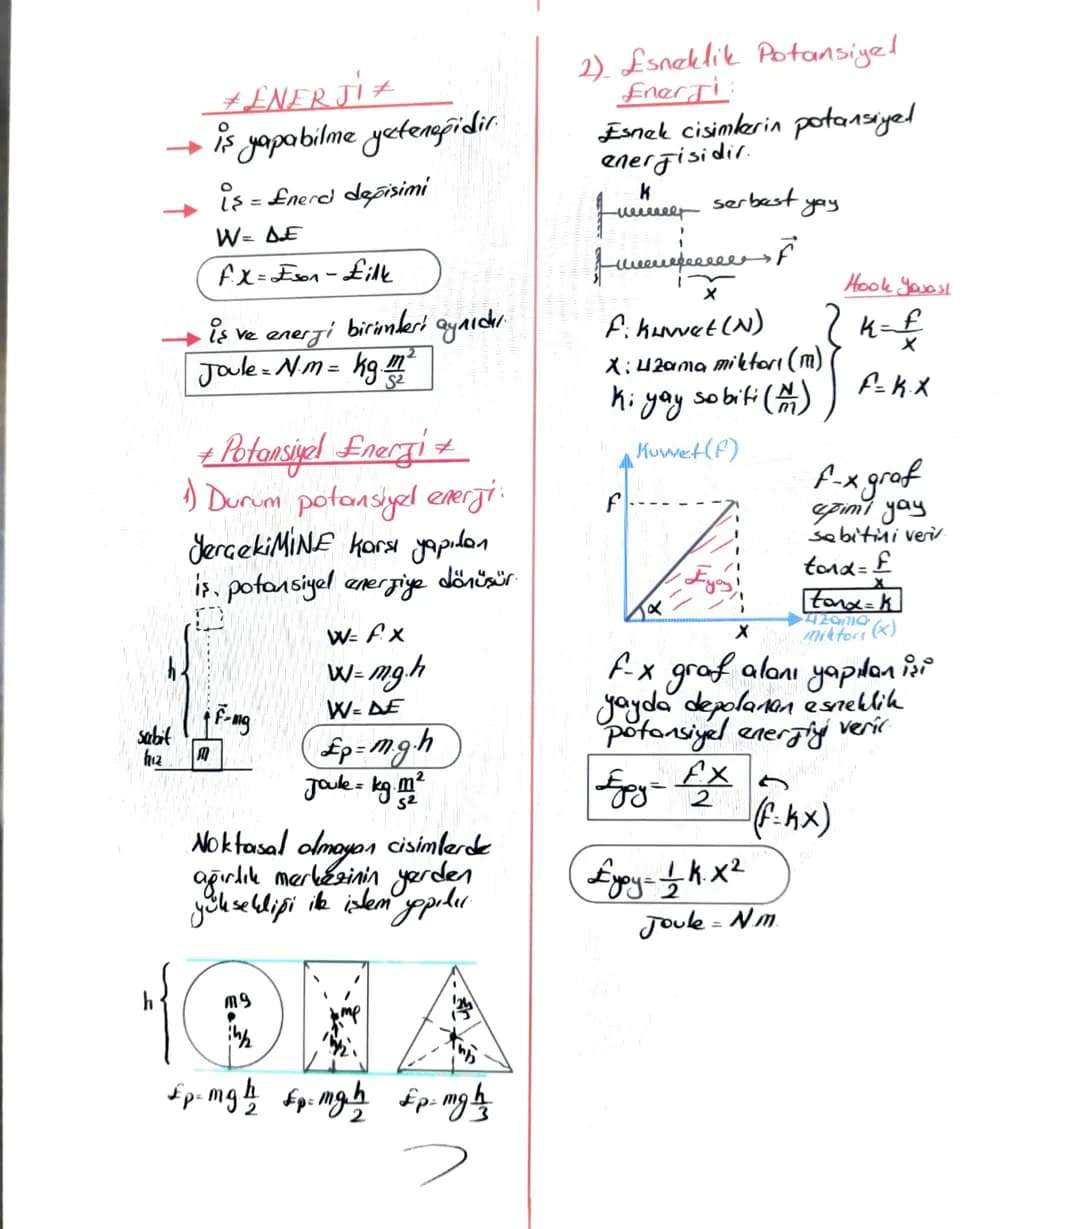 * ENERJİ *
→ İş yapabilme yeteneğidir.
→ İş = Enerci değişimi
W = ΔE
F.X = Eson - Eilk
→ İş ve enerji birimleri aynıdır.
Joule = N.m = kg.m²/s²
* Potansiyel Enerji *
1) Durum potansiyel enerji:
YerçekiMİNE karşı yapılan
iş, potansiyel enerjiye dönüşür.
h
F=mg
sabit
hız
m
W = F.X
W = mg.h
W = ΔE
Ep = m.g.h
Joule = kg.m²/s²
Noktasal olmayan cisimlerde
ağırlık merkezinin yerden
yüksekliği ile işlem yapılır.
h
mg
h/2
mg
h/2
2h/3
h/3
Ep = mg h/2
Ep = mg.h/2
Ep = mg h/3
2) Esneklik Potansiyel
Enerji:
Esnek cisimlerin potansiyel
enerjisidir.
k
serbest yay
F
x
Hook Yasası
F: kuvvet (N)
X: uzama miktarı (m)
k: yay sabiti (N/m)
k = F/x
F = k.X
Kuvvet (F)
F
Eyay
α
x
uzama
miktarı (x)
F-x graf
eğimi yay
sabitini verir.
tanα = F/x
tanα = k
F-x graf alanı yapılan işi
yayda depolanan esneklik
potansiyel enerjiyi verir.
Epy = F.X/2
(F=kX)
Eyay = 1/2 k.x²
Joule = N.m